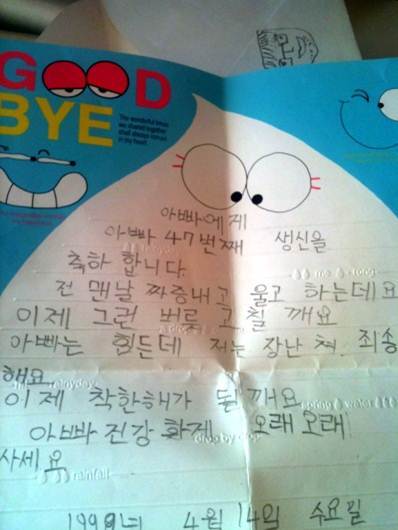 GOOD
BYE
The wonderful times
we shared together
shall always remain
in my heart
아빠에게
아빠 47번째 생신을
축하 합니다.
전 맨날 짜증내고 울고 하는데요
이제 그런 버릇 고칠 깨요
아빠는 힘든데 저는 장난쳐 죄송
해요
이제 착한해가 될깨요
아빠 건강 화게 오래오래
사세요
rainfall
1999년 4월 14일 수요일